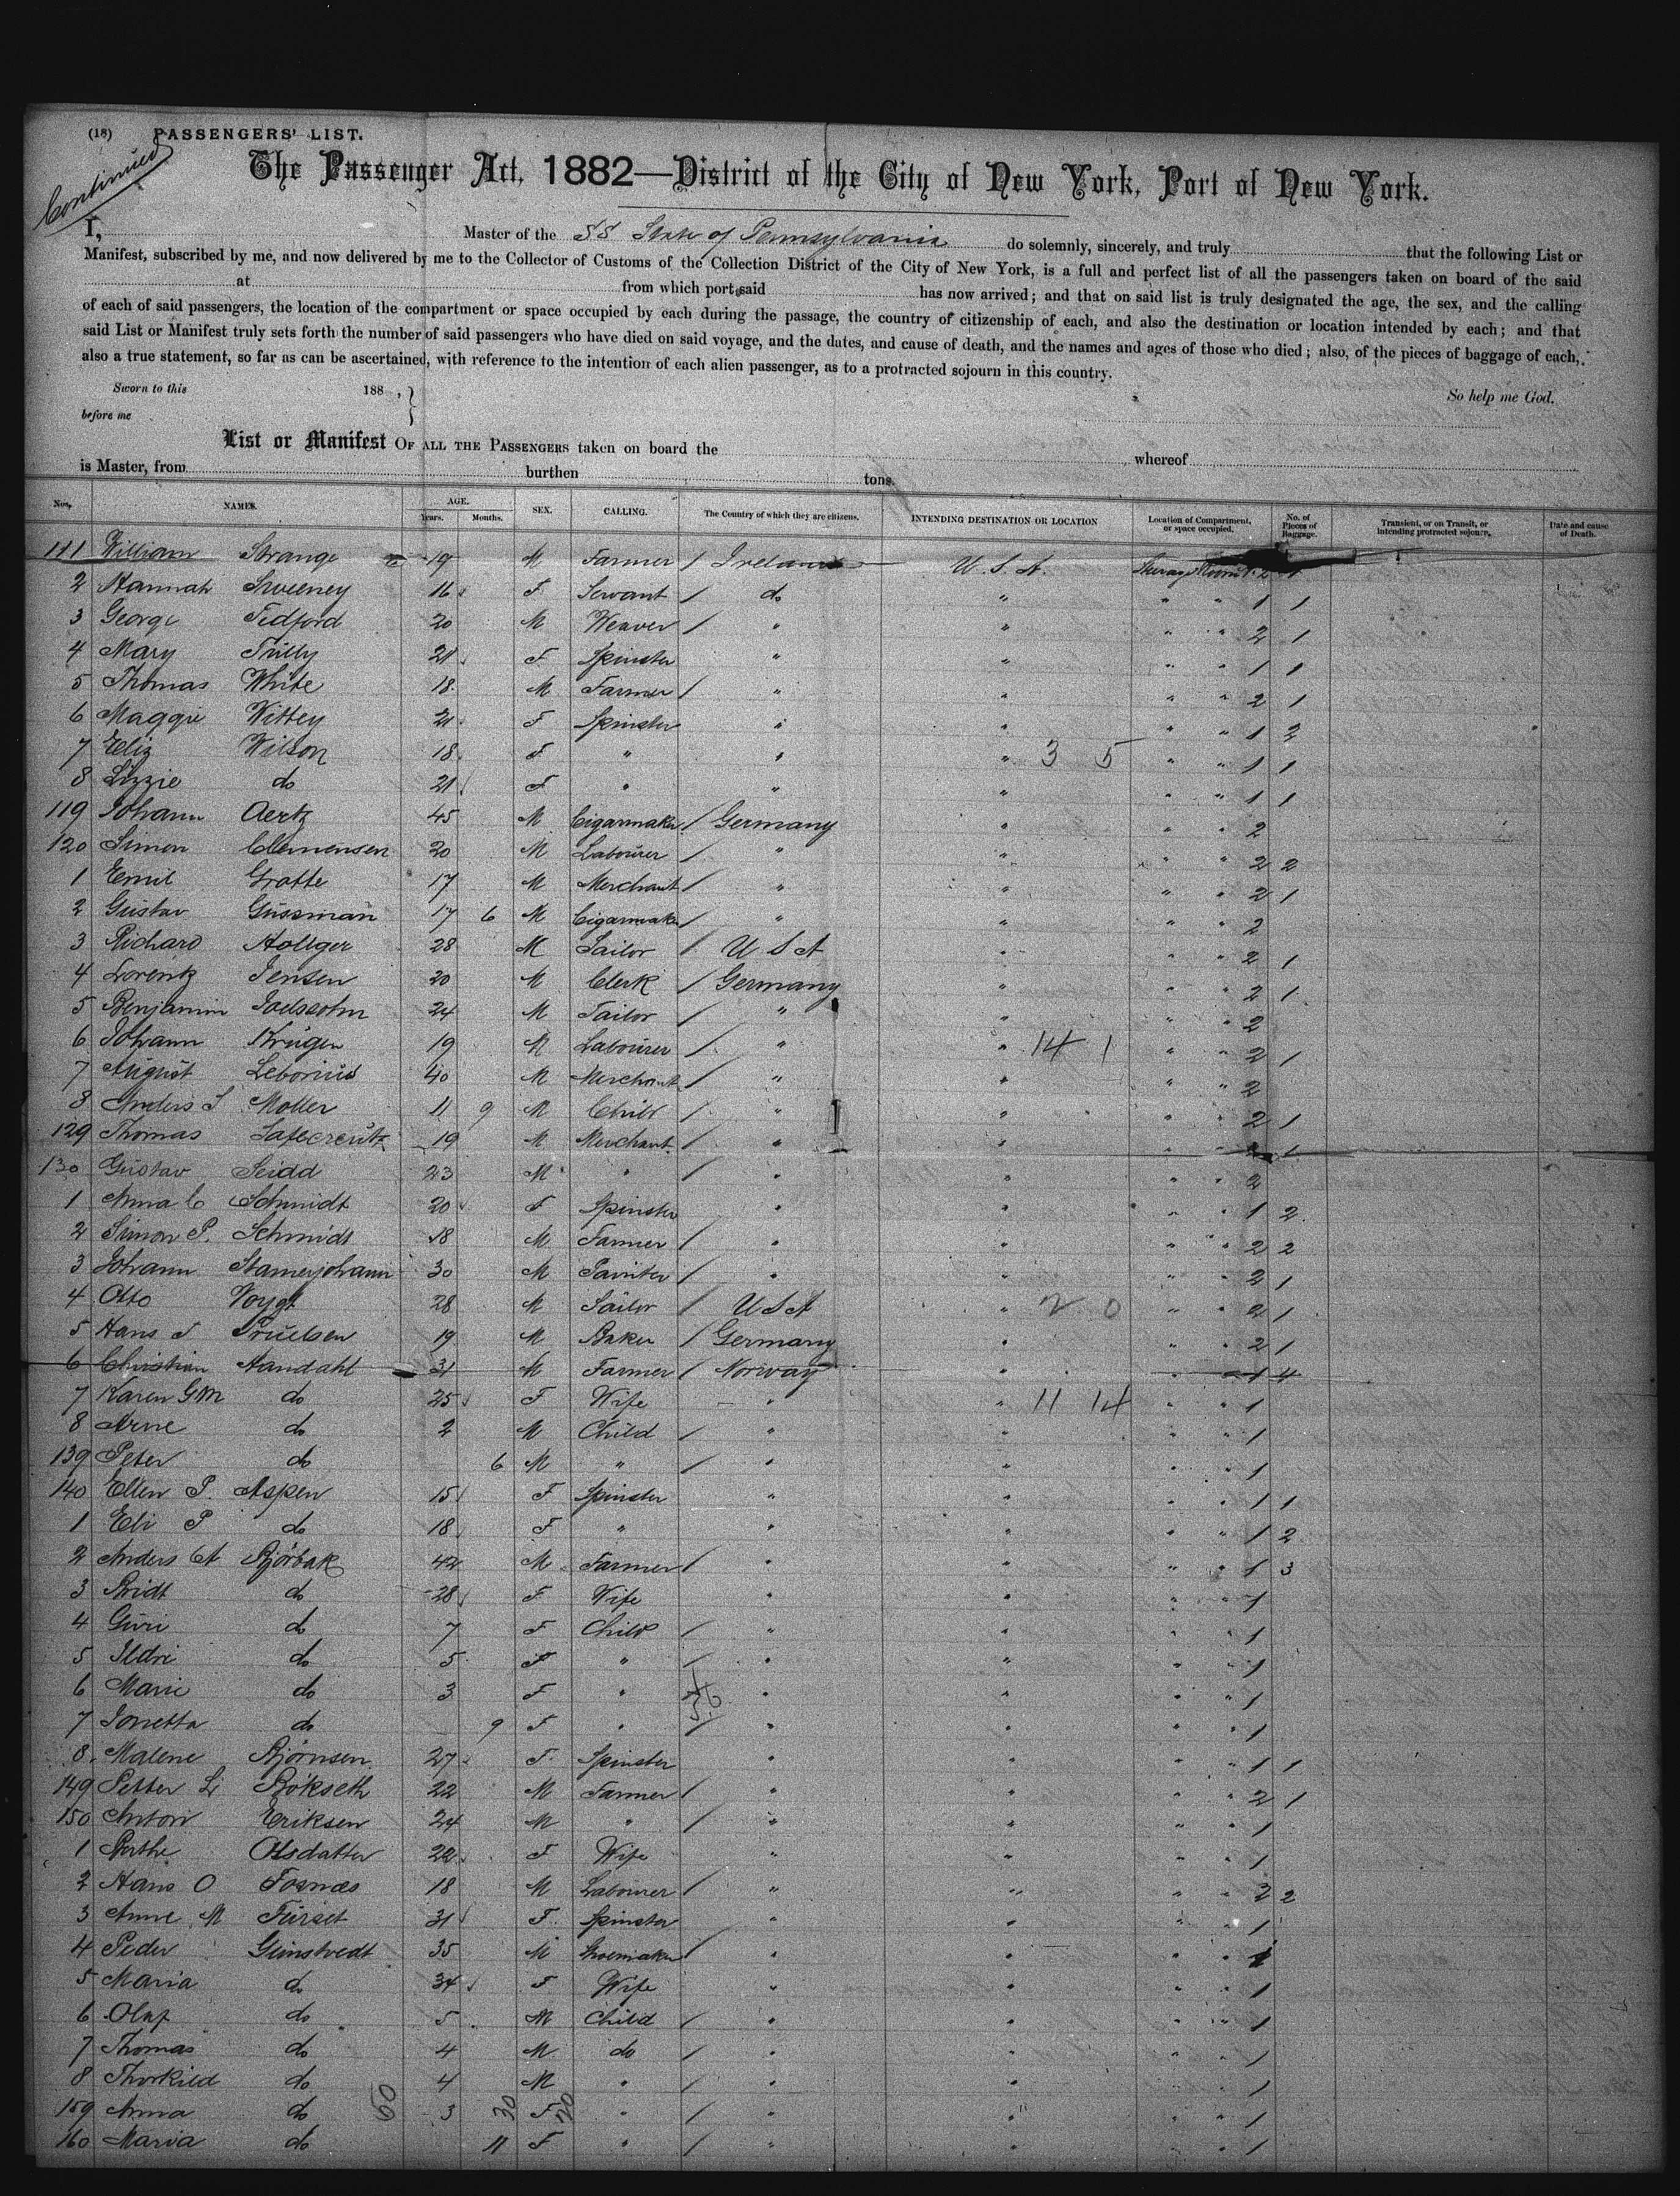 (18) PASSENGERS' LIST.
Continued
The Passenger Act, 1882—District of the City of New York, Port of New York.
I, Master of the SS State of Pennsylvania do solemnly, sincerely, and truly that the following List or
Manifest, subscribed by me, and now delivered by me to the Collector of Customs of the Collection District of the City of New York, is a full and perfect list of all the passengers taken on board of the said
at from which port said has now arrived; and that on said list is truly designated the age, the sex, and the calling
of each of said passengers, the location of the compartment or space occupied by each during the passage, the country of citizenship of each, and also the destination or location intended by each; and that
said List or Manifest truly sets forth the number of said passengers who have died on said voyage, and the dates, and cause of death, and the names and ages of those who died; also, of the pieces of baggage of each,
also a true statement, so far as can be ascertained, with reference to the intention of each alien passenger, as to a protracted sojourn in this country.
Sworn to this 188 , So help me God.
before me
List or Manifest OF ALL THE PASSENGERS taken on board the whereof
is Master, from burthen tons.
Nos. NAMES. AGE. Years. Months. SEX. CALLING. The Country of which they are citizens. INTENDING DESTINATION OR LOCATION Location of Compartment, or space occupied. No. of Pieces of Baggage. Transient, or on Transit, or intending protracted sojourn. Date and cause of Death.
111 William Strange 19 M Farmer / Ireland U.S.A. 2 1
2 Hannah Sweeney 16 F Servant / do " " " 1 1
3 George Tedford 20 M Weaver / " " " " 2 1
4 Mary Tully 21 F Spinster " " " " 1 1
5 Thomas White 18 M Farmer / " " " " 2 1
6 Maggie Wittey 21 F Spinster " " " " 1 2
7 Eliz Wilson 18 F " " " 3 5 " " 1 1
8 Lizzie do 21 F " " " " " 1 1
119 Johann Aertz 45 M Cigarmaker / Germany " " " 2
120 Simon Clemensen 20 M Labourer / " " " " 2 2
1 Emil Grotte 17 M Merchant / " " " " 2 1
2 Gustav Gussman 17 6 M Cigarmaker / " " " " 2
3 Richard Hollger 28 M Sailor / U S A " " " 2 1
4 Lorentz Jensen 20 M Clerk / Germany " " " 2 1
5 Benjamin 24 M Tailor / " " " " 2
6 Johann Krüger 19 M Labourer / " " 14 1 " " 2 1
7 August Leborius 40 M Merchant / " " " " 2
8 Anders J Moller 11 9 M Child / " " " " 2 1
129 Thomas 19 M Merchant / " " " " 1
130 Gustav Seidd 23 M " / " " " " 2
1 Anna C Schmidt 20 F Spinster " " " " 1 2
2 Simon P. Schmidt 18 M Farmer / " " " " 2 2
3 Johann Stamerjohann 30 M Painter / " " " " 2 1
4 Otto Voygt 28 M Sailor / U S A " 2 0 " " 2 1
5 Hans J Truelsen 19 M Baker / Germany " " " 2 1
6 Christian Aandahl 31 M Farmer / Norway " " 1 4
7 Karen G M do 25 F Wife " " 11 14 " " 1
8 Arne do 2 M Child / " " " " 1
139 Peter do 6 M " / " " " " 1
140 Ellen P. Aspen 15 F Spinster " " " " 1 1
1 Eli P do 18 F " " " " " 1 2
2 Anders A Bjørbak 42 M Farmer / " " " " 1 3
3 Bridt do 28 F Wife " " " " 1
4 Guri do 7 F Child / " " " " 1
5 Ildri do 5 F " / " " " " 1
6 Marie do 3 F " " " " " 1
7 Jonetta do 9 F " / " " " " 1
8 Malene Bjørnsen 27 F Spinster " " " " 1 1
149 Petter Bökseth 22 M Farmer / " " " " 2 1
150 Anton Eriksen 24 M " / " " " " 1
1 Berthe Olsdatter 22 F Wife " " " " 1
2 Hans O Fosnæs 18 M Labourer / " " " " 2 2
3 Anne M Fürset 31 F Spinster " " " " 1
4 Peder Gunstvedt 35 M Shoemaker / " " " " 1
5 Maria do 34 F Wife " " " " 1
6 Olaf do 5 M Child / " " " " 1
7 Thomas do 4 M do / " " " " 1
8 Thorkild do 4 M " / " " " " 1
159 Anna do 60 3 30 F 20 " / " " " " 1
160 Maria do 11 F " / " " " " 1